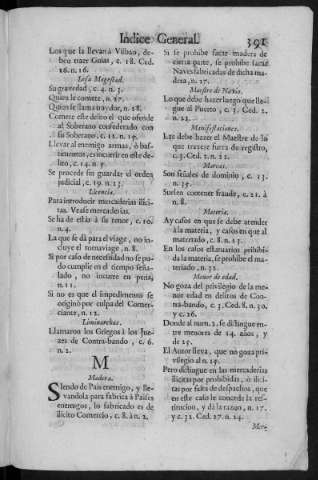 Indice General. 391
Los que la llevan à Vilbao, de-
ben traer Guias, c. 18. Ced.
26. n. 16.
Lesa Magestad.
Su gravedad, c. 4. n. 3.
Quien le comete, n. 17.
Quien se llama traydor, n. 18.
Comete este delito el que ofende
al Soberano confederado con
su Soberano, c. 12. n. 19.
Llevar al enemigo armas, ò bas-
timentos, es incurrir en este de-
lito, c. 14. n. 5.
Se procede sin guardar el orden
judicial, c. 19. n. 23.
Licencia.
Para introducir mercaderias ilici-
tas. Vease mercaderias.
Se ha de estàr à su tenor, c. 10.
n. 4.
La que se dà para el viage, no in-
cluye el tornaviage, n. 8.
Si por caso de necessidad no se pu-
do cumplir en el tiempo seña-
lado, no incurre en pena,
n. 11.
Si no es que el impedimento se
originò por culpa del Comer-
ciante, n. 12.
Liminarchas.
Llamaron los Griegos à los Jue-
zes de Contra-bando, c. 6.
n. 2.
M
Madera.
SIendo de Pais enemigo, y lle-
vandola para fabrica à Paises
enemigos, lo fabricado es de
ilicito Comercio, c. 8. à n. 2.
Si se prohibe sacar madera de
cierta parte, se prohibe sacar
Naves fabricadas de dicha ma-
dera, n. 27.
Maestre de Navio.
Lo que debe hazer luego que lle-
gue al Puerto, c. 3. Ced. 2.
n. 22.
Manifestaciones.
Las debe hazer el Maestre de lo
que traxere fuera de registro,
c. 3. Ced. 2. n. 22.
Marcas.
Son señales de dominio, c. 13.
n. 35.
Suelen cometer fraude, c. 21. à
n. 8.
Materia.
Ay casos en que se debe atender
à la materia, y casos en que al
materiado, c. 8. n. 13.
En los casos estatuarios prohibi-
da la materia, se prohibe el ma-
teriado, n. 32.
Menor de edad.
No goza del privilegio de la me-
nor edad en delitos de Con-
tra-bando, c. 3. Ced. 8. n. 30.
y c. 26.
Donde al num. 2. se distingue en-
tre menores de 14. años, y
de 25.
El Autor lleva, que no goza pri-
vilegio al n. 19.
Pero distingue en las mercaderias
ilicitas por prohibidas, ò ilici-
tas por falta de despachos, que
en este caso le concede la res-
titucion, y dà la razon, n. 27.
y c. 32. Ced. 27. n. 24.
Merc